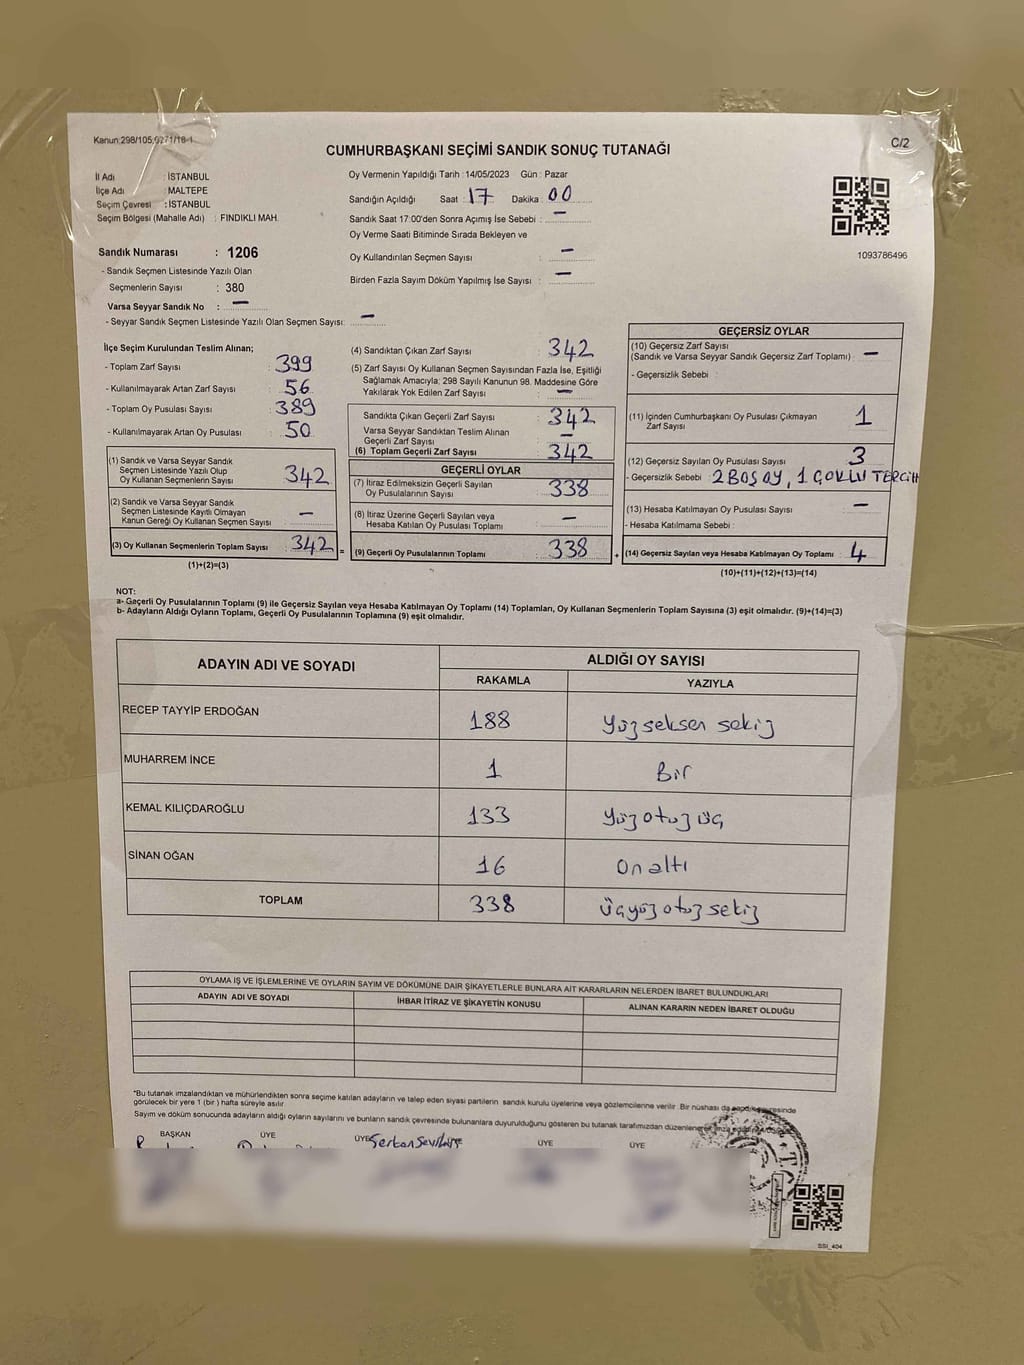 Kanun:298/105,0271/18-1
C/2
CUMHURBAŞKANI SEÇİMİ SANDIK SONUÇ TUTANAĞI
İl Adı : İSTANBUL
İlçe Adı : MALTEPE
Seçim Çevresi : İSTANBUL
Seçim Bölgesi (Mahalle Adı) : FINDIKLI MAH.
Sandık Numarası : 1206
- Sandık Seçmen Listesinde Yazılı Olan
Seçmenlerin Sayısı : 380
Varsa Seyyar Sandık No : —
- Seyyar Sandık Seçmen Listesinde Yazılı Olan Seçmen Sayısı: —
Oy Vermenin Yapıldığı Tarih : 14/05/2023 Gün : Pazar
Sandığın Açıldığı Saat : 17 Dakika : 00
Sandık Saat 17:00'den Sonra Açımış İse Sebebi : —
Oy Verme Saati Bitiminde Sırada Bekleyen ve
Oy Kullandırılan Seçmen Sayısı : —
Birden Fazla Sayım Döküm Yapılmış İse Sayısı : —
1093786496
İlçe Seçim Kurulundan Teslim Alınan;
- Toplam Zarf Sayısı : 399
- Kullanılmayarak Artan Zarf Sayısı : 56
- Toplam Oy Pusulası Sayısı : 389
- Kullanılmayarak Artan Oy Pusulası : 50
(1) Sandık ve Varsa Seyyar Sandık
Seçmen Listesinde Yazılı Olup
Oy Kullanan Seçmenlerin Sayısı : 342
(2) Sandık ve Varsa Seyyar Sandık
Seçmen Listesinde Kayıtlı Olmayan
Kanun Gereği Oy Kullanan Seçmen Sayısı : —
(3) Oy Kullanan Seçmenlerin Toplam Sayısı : 342 =
(1)+(2)=(3)
(4) Sandıktan Çıkan Zarf Sayısı : 342
(5) Zarf Sayısı Oy Kullanan Seçmen Sayısından Fazla İse, Eşitliği
Sağlamak Amacıyla; 298 Sayılı Kanunun 98. Maddesine Göre
Yakılarak Yok Edilen Zarf Sayısı : —
Sandıkta Çıkan Geçerli Zarf Sayısı : 342
Varsa Seyyar Sandıktan Teslim Alınan
Geçerli Zarf Sayısı : —
(6) Toplam Geçerli Zarf Sayısı : 342
GEÇERLİ OYLAR
(7) İtiraz Edilmeksizin Geçerli Sayılan
Oy Pusulalarının Sayısı : 338
(8) İtiraz Üzerine Geçerli Sayılan veya
Hesaba Katılan Oy Pusulası Toplamı : —
(9) Geçerli Oy Pusulalarının Toplamı : 338 +
GEÇERSİZ OYLAR
(10) Geçersiz Zarf Sayısı
(Sandık ve Varsa Seyyar Sandık Geçersiz Zarf Toplamı) : —
- Geçersizlik Sebebi :
(11) İçinden Cumhurbaşkanı Oy Pusulası Çıkmayan
Zarf Sayısı : 1
(12) Geçersiz Sayılan Oy Pusulası Sayısı : 3
- Geçersizlik Sebebi : 2 BOŞ OY, 1 ÇOKLU TERCİH
(13) Hesaba Katılmayan Oy Pusulası Sayısı : —
- Hesaba Katılmama Sebebi :
(14) Geçersiz Sayılan veya Hesaba Katılmayan Oy Toplamı : 4
(10)+(11)+(12)+(13)=(14)
NOT:
a- Geçerli Oy Pusulalarının Toplamı (9) ile Geçersiz Sayılan veya Hesaba Katılmayan Oy Toplamı (14) Toplamları, Oy Kullanan Seçmenlerin Toplam Sayısına (3) eşit olmalıdır. (9)+(14)=(3)
b- Adayların Aldığı Oyların Toplamı, Geçerli Oy Pusulalarının Toplamına (9) eşit olmalıdır.
ADAYIN ADI VE SOYADI
ALDIĞI OY SAYISI
RAKAMLA YAZIYLA
RECEP TAYYİP ERDOĞAN 188 Yüzseksen sekiz
MUHARREM İNCE 1 Bir
KEMAL KILIÇDAROĞLU 133 Yüz otuz üç
SİNAN OĞAN 16 on altı
TOPLAM 338 üçyüz otuz sekiz
OYLAMA İŞ VE İŞLEMLERİNE VE OYLARIN SAYIM VE DÖKÜMÜNE DAİR ŞİKAYETLERLE BUNLARA AİT KARARLARIN NELERDEN İBARET BULUNDUKLARI
ADAYIN ADI VE SOYADI İHBAR İTİRAZ VE ŞİKAYETİN KONUSU ALINAN KARARIN NEDEN İBARET OLDUĞU
*Bu tutanak imzalandıktan ve mühürlendikten sonra seçime katılan adayların ve talep eden siyasi partilerin sandık kurulu üyelerine veya gözlemcilerine verilir. Bir nüshası da sandık çevresinde
görülecek bir yere 1 (bir) hafta süreyle asılır.
Sayım ve döküm sonucunda adayların aldığı oyların sayılarını ve bunların sandık çevresinde bulunanlara duyurulduğunu gösteren bu tutanak tarafımızdan düzenlenerek
BAŞKAN ÜYE ÜYE ÜYE ÜYE
Serkan
SSİ_404